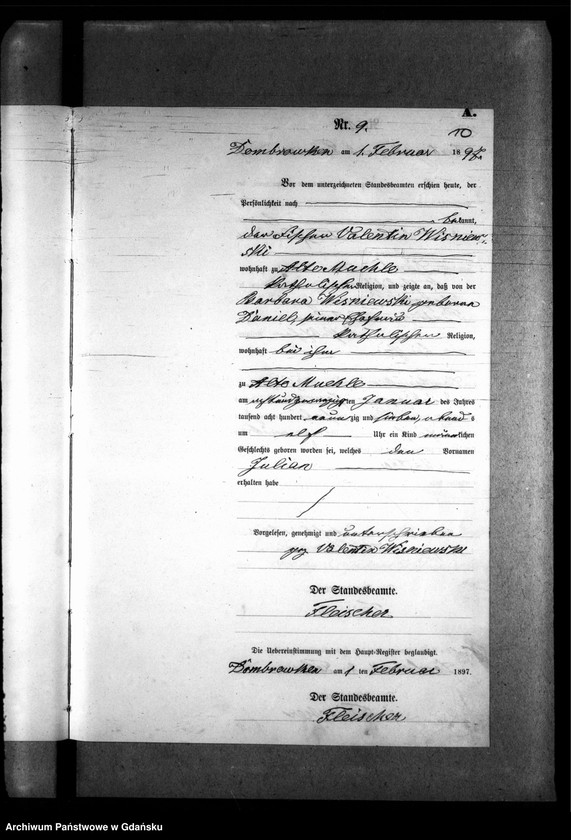 A.
Nr. 9.
10
Dombrowken am 1. Februar 1897.
Vor dem unterzeichneten Standesbeamten erschien heute, der
Persönlichkeit nach
bekannt,
der Fischer Valentin Wisniew-
ski
wohnhaft zu Alte Muehle
katholischer Religion, und zeigte an, daß von der
Barbara Wisniewski geborene
Daniel, seiner Ehefrau
katholischer Religion,
wohnhaft bei ihm
zu Alte Muehle
am Januar des Jahres
tausend acht hundert neunzig und sieben, abends
um elf Uhr ein Kind männlichen
Geschlechts geboren worden sei, welches den Vornamen
Julian
erhalten habe
Vorgelesen, genehmigt und unterschrieben
gez Valentin Wisniewski
Der Standesbeamte.
Fleischer
Die Uebereinstimmung mit dem Haupt-Register beglaubigt.
Dombrowken am 1 ten Februar 1897.
Der Standesbeamte.
Fleischer
Archiwum Państwowe w Gdańsku